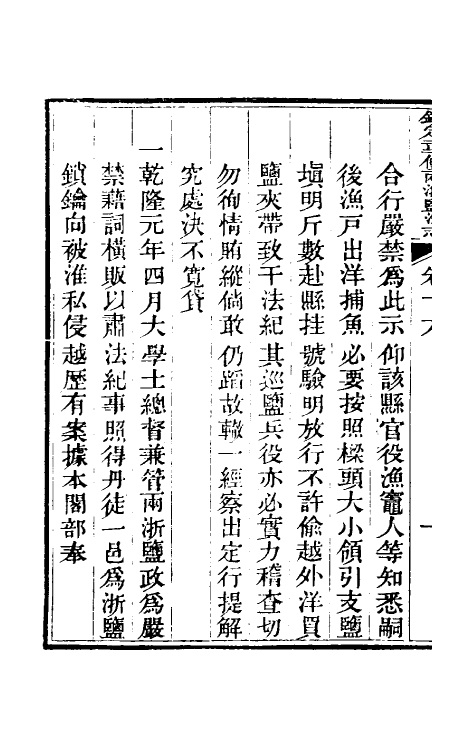 合行嚴禁爲此示仰該縣官役漁竈人等知悉嗣
後漁戸出洋捕魚必要按照樑頭大小領引支鹽
塡明斤數赴縣挂號驗明放行不許偷越外洋買
鹽夾帶致干法紀其巡鹽兵役亦必實力稽查切
勿徇情賄縱倘敢仍蹈故轍一經察出定行提解
究處決不寬貸
一乾隆元年四月大學士總督兼管兩浙鹽政爲嚴
禁藉詞橫販以肅法紀事照得丹徒一邑爲浙鹽
鎖鑰向被淮私侵越歷有案據本閣部奉